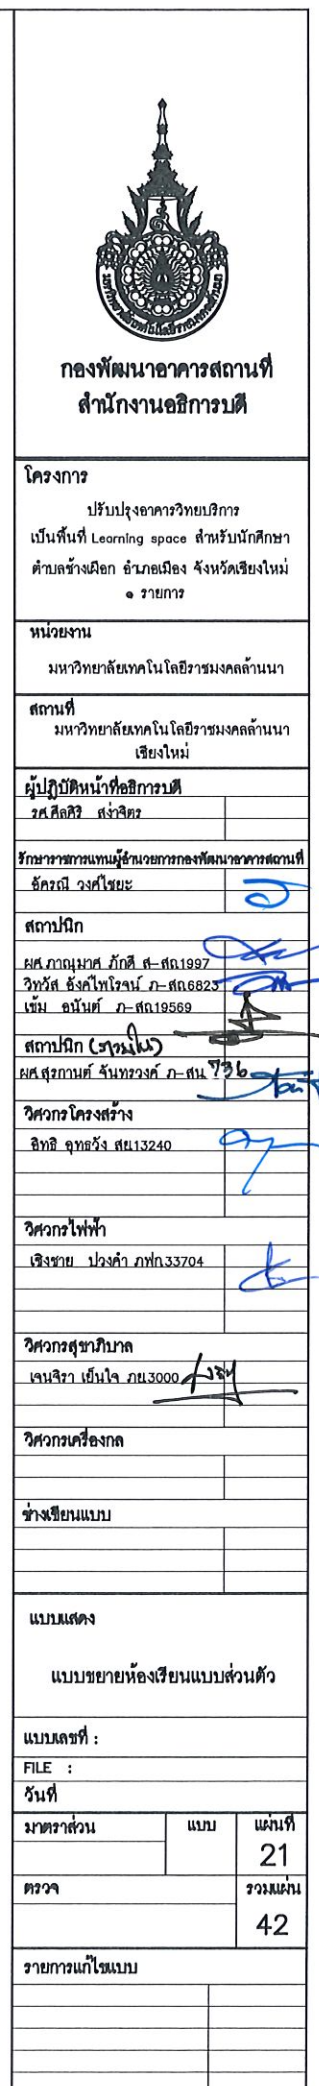 มหาวิทยาลัยเทคโนโลยีราชมงคลล้านนา
กองพัฒนาอาคารสถานที่
สำนักงานอธิการบดี
โครงการ
ปรับปรุงอาคารวิทยบริการ
เป็นพื้นที่ Learning space สำหรับนักศึกษา
ตำบลช้างเผือก อำเภอเมือง จังหวัดเชียงใหม่
๑ รายการ
หน่วยงาน
มหาวิทยาลัยเทคโนโลยีราชมงคลล้านนา
สถานที่
มหาวิทยาลัยเทคโนโลยีราชมงคลล้านนา
เชียงใหม่
ผู้ปฏิบัติหน้าที่อธิการบดี
รศ.ศีลศิริ สง่าจิตร
รักษาราชการแทนผู้อำนวยการกองพัฒนาอาคารสถานที่
อัครณี วงศ์ไชยะ
สถาปนิก
ผศ.ภาณุมาศ ภักดี ส-สถ1997
วิทวัส อังค์ไพโรจน์ ภ-สถ6823
เข้ม อนันต์ ภ-สถ19569
สถาปนิก (ภายใน)
ผศ.สุรกานต์ จันทรวงค์ ภ-สน 736
วิศวกรโครงสร้าง
อิทธิ อุทธวัง สย13240
วิศวกรไฟฟ้า
เชิงชาย ปวงคำ ภฟก.33704
วิศวกรสุขาภิบาล
เจนจิรา เย็นใจ ภย.3000
วิศวกรเครื่องกล
ช่างเขียนแบบ
แบบแสดง
แบบขยายห้องเรียนแบบส่วนตัว
แบบเลขที่ :
FILE :
วันที่
มาตราส่วน แบบ แผ่นที่
21
ตรวจ รวมแผ่น
42
รายการแก้ไขแบบ